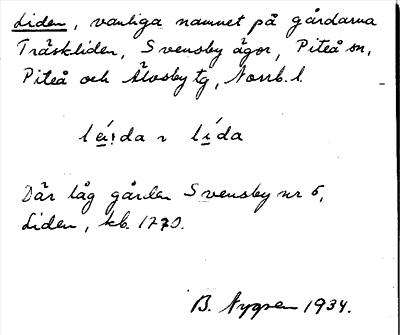 Liden, vanliga namnet på gårdarna
Träskliden, Svensby ägor, Piteå sn,
Piteå och Älvsby tg, Norrb. l.
léi:da ~ lída
Där låg gården Svensby nr 6,
Liden, kb. 1770.
B. Nygren 1934.